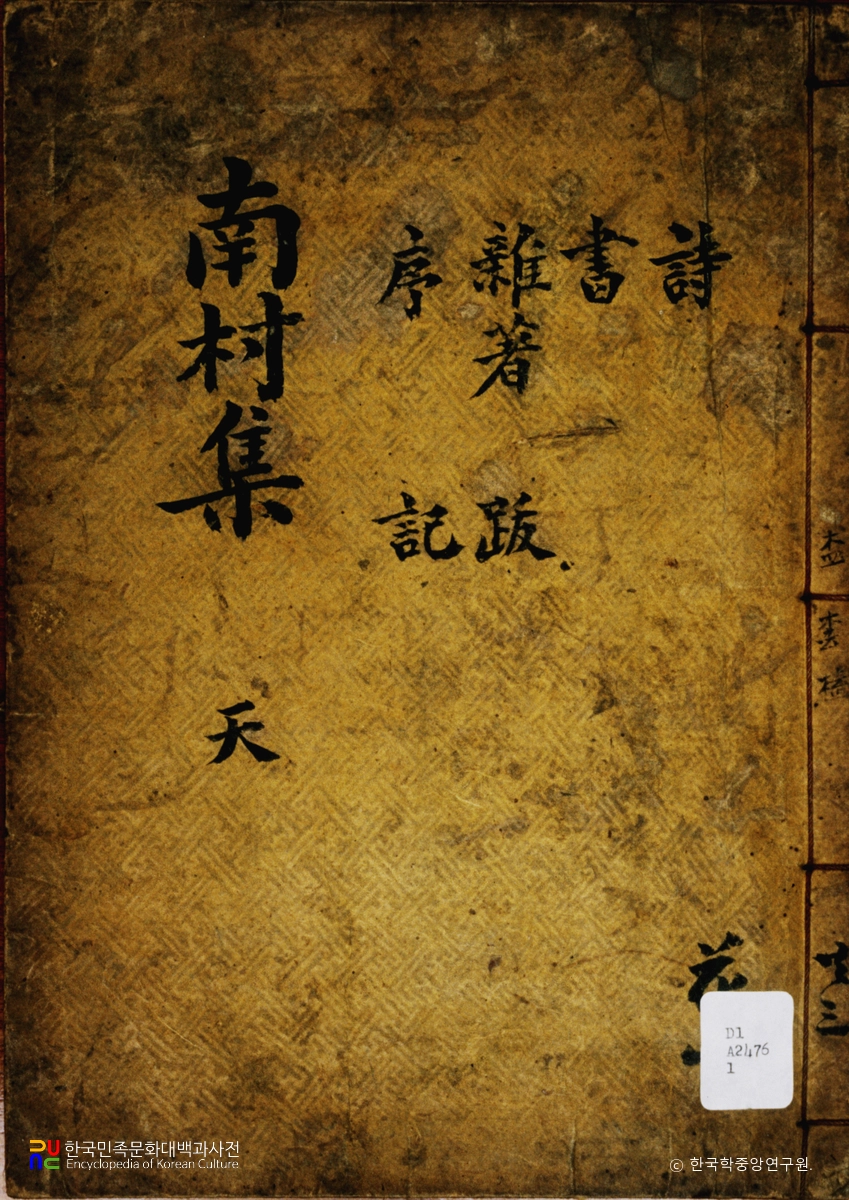 詩
書
雜著 跋
序 記
南村集 天
D1
A2476
1
한국민족문화대백과사전
Encyclopedia of Korean Culture
© 한국학중앙연구원.